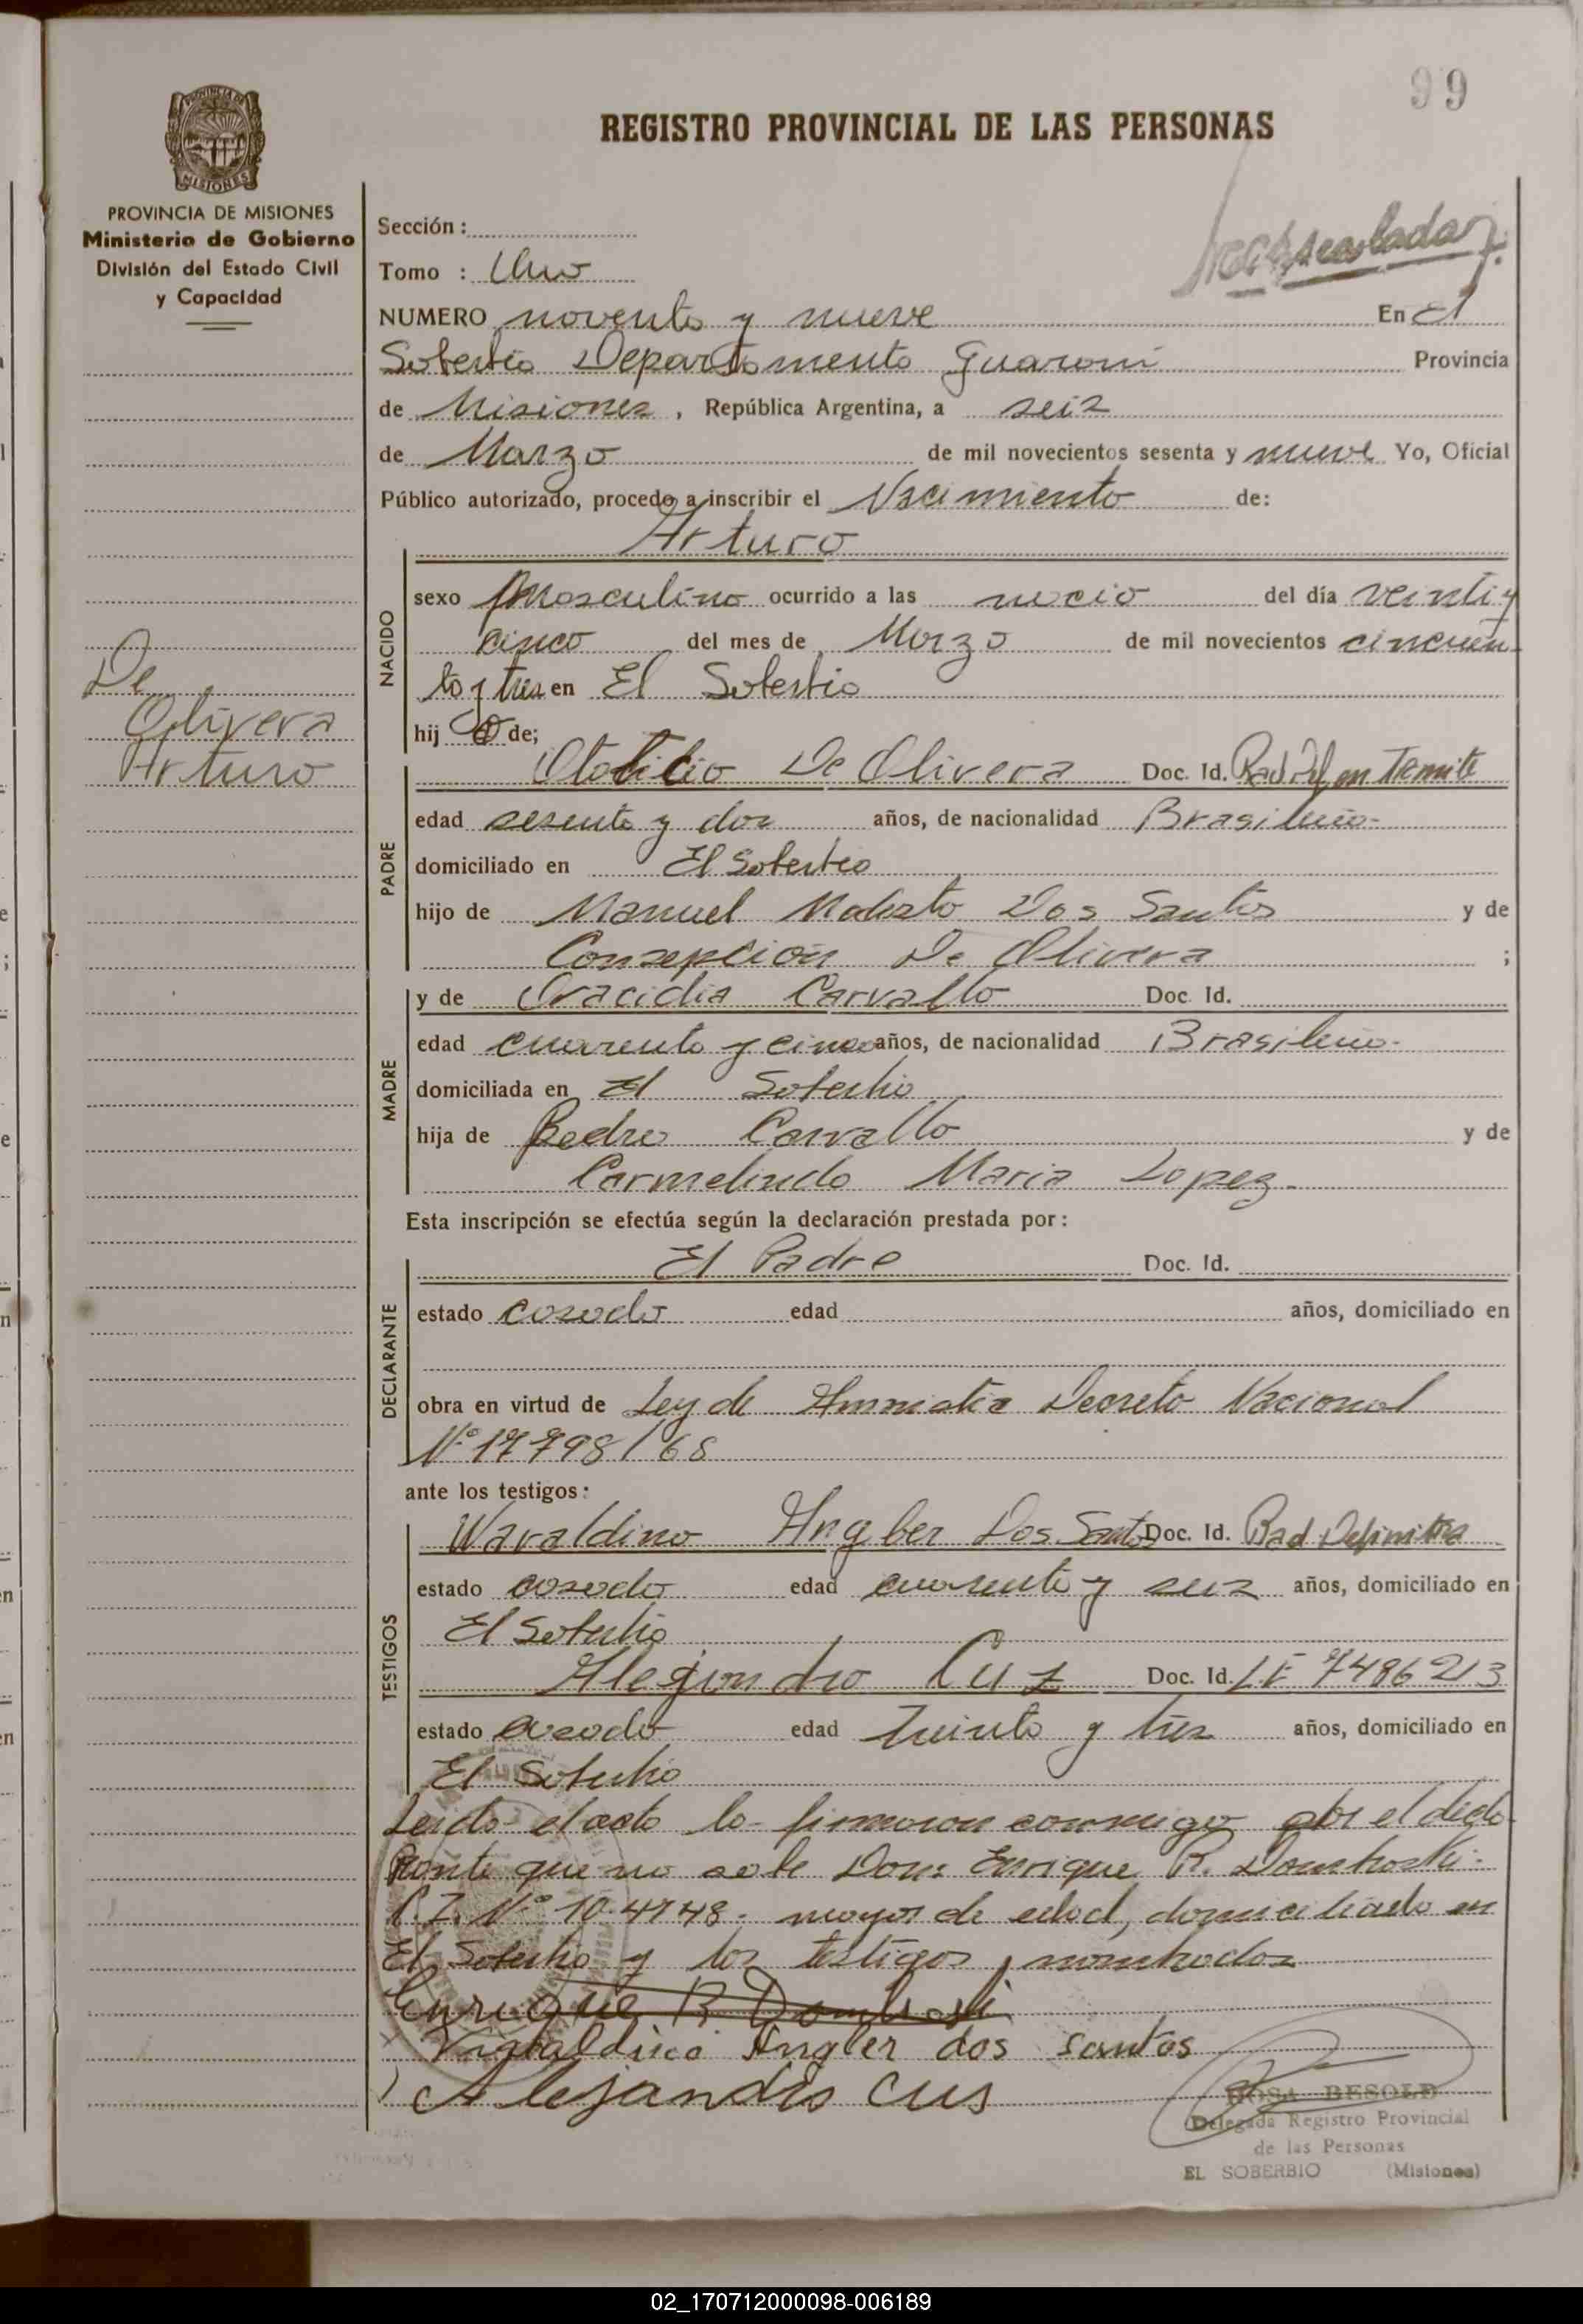 99
REGISTRO PROVINCIAL DE LAS PERSONAS
PROVINCIA DE MISIONES
Ministerio de Gobierno
División del Estado Civil
y Capacidad
Sección :
Tomo : Uno
NUMERO noventa y nueve En El
Soberbio Departamento Guarani Provincia
de Misiones , República Argentina, a seis
de Marzo de mil novecientos sesenta y nueve Yo, Oficial
Público autorizado, procedo a inscribir el Nacimiento de:
Arturo
NACIDO
sexo Masculino ocurrido a las del día veinti y
cinco del mes de Marzo de mil novecientos cincuen
ta y tres en El Soberbio
hij o de;
De
Olivera
Arturo
PADRE
De Olivera Doc. Id. Rad Def en Tramite
edad sesenta y dos años, de nacionalidad Brasileña-
domiciliado en El Soberbio
hijo de Manuel Dos Santos y de
Consepcion De Olivera ;
MADRE
y de Oracidia Carvallo Doc. Id.
edad cuarenta y cinco años, de nacionalidad Brasileña-
domiciliada en El Soberbio
hija de Pedro Carvallo y de
Carmelinda Maria Lopez-
Esta inscripción se efectúa según la declaración prestada por :
DECLARANTE
El Padre Doc. Id.
estado casado edad años, domiciliado en
obra en virtud de Ley de Amnistia Decreto Nacional
Nº 17798/68
ante los testigos :
TESTIGOS
Waraldino Angber Dos Santos Doc. Id. Rad Definitiva
estado casado edad cuarenta y seis años, domiciliado en
El Soberbio
Alejandro Cuz Doc. Id. LE 7486213
estado casado edad treinta y tres años, domiciliado en
El Soberbio
Leida el acta la firmaron conmigo por el decla
rante que no sabe Don: Enrique R.
C.I. Nº 10.4748- mayor de edad, domiciliado en
El Soberbio y los testigos nombrados
Enrique R
Angler dos santos
Alejandro Cus
ROSA BESOLD
Delegada Registro Provincial
de las Personas
EL SOBERBIO (Misiones)
02_170712000098-006189